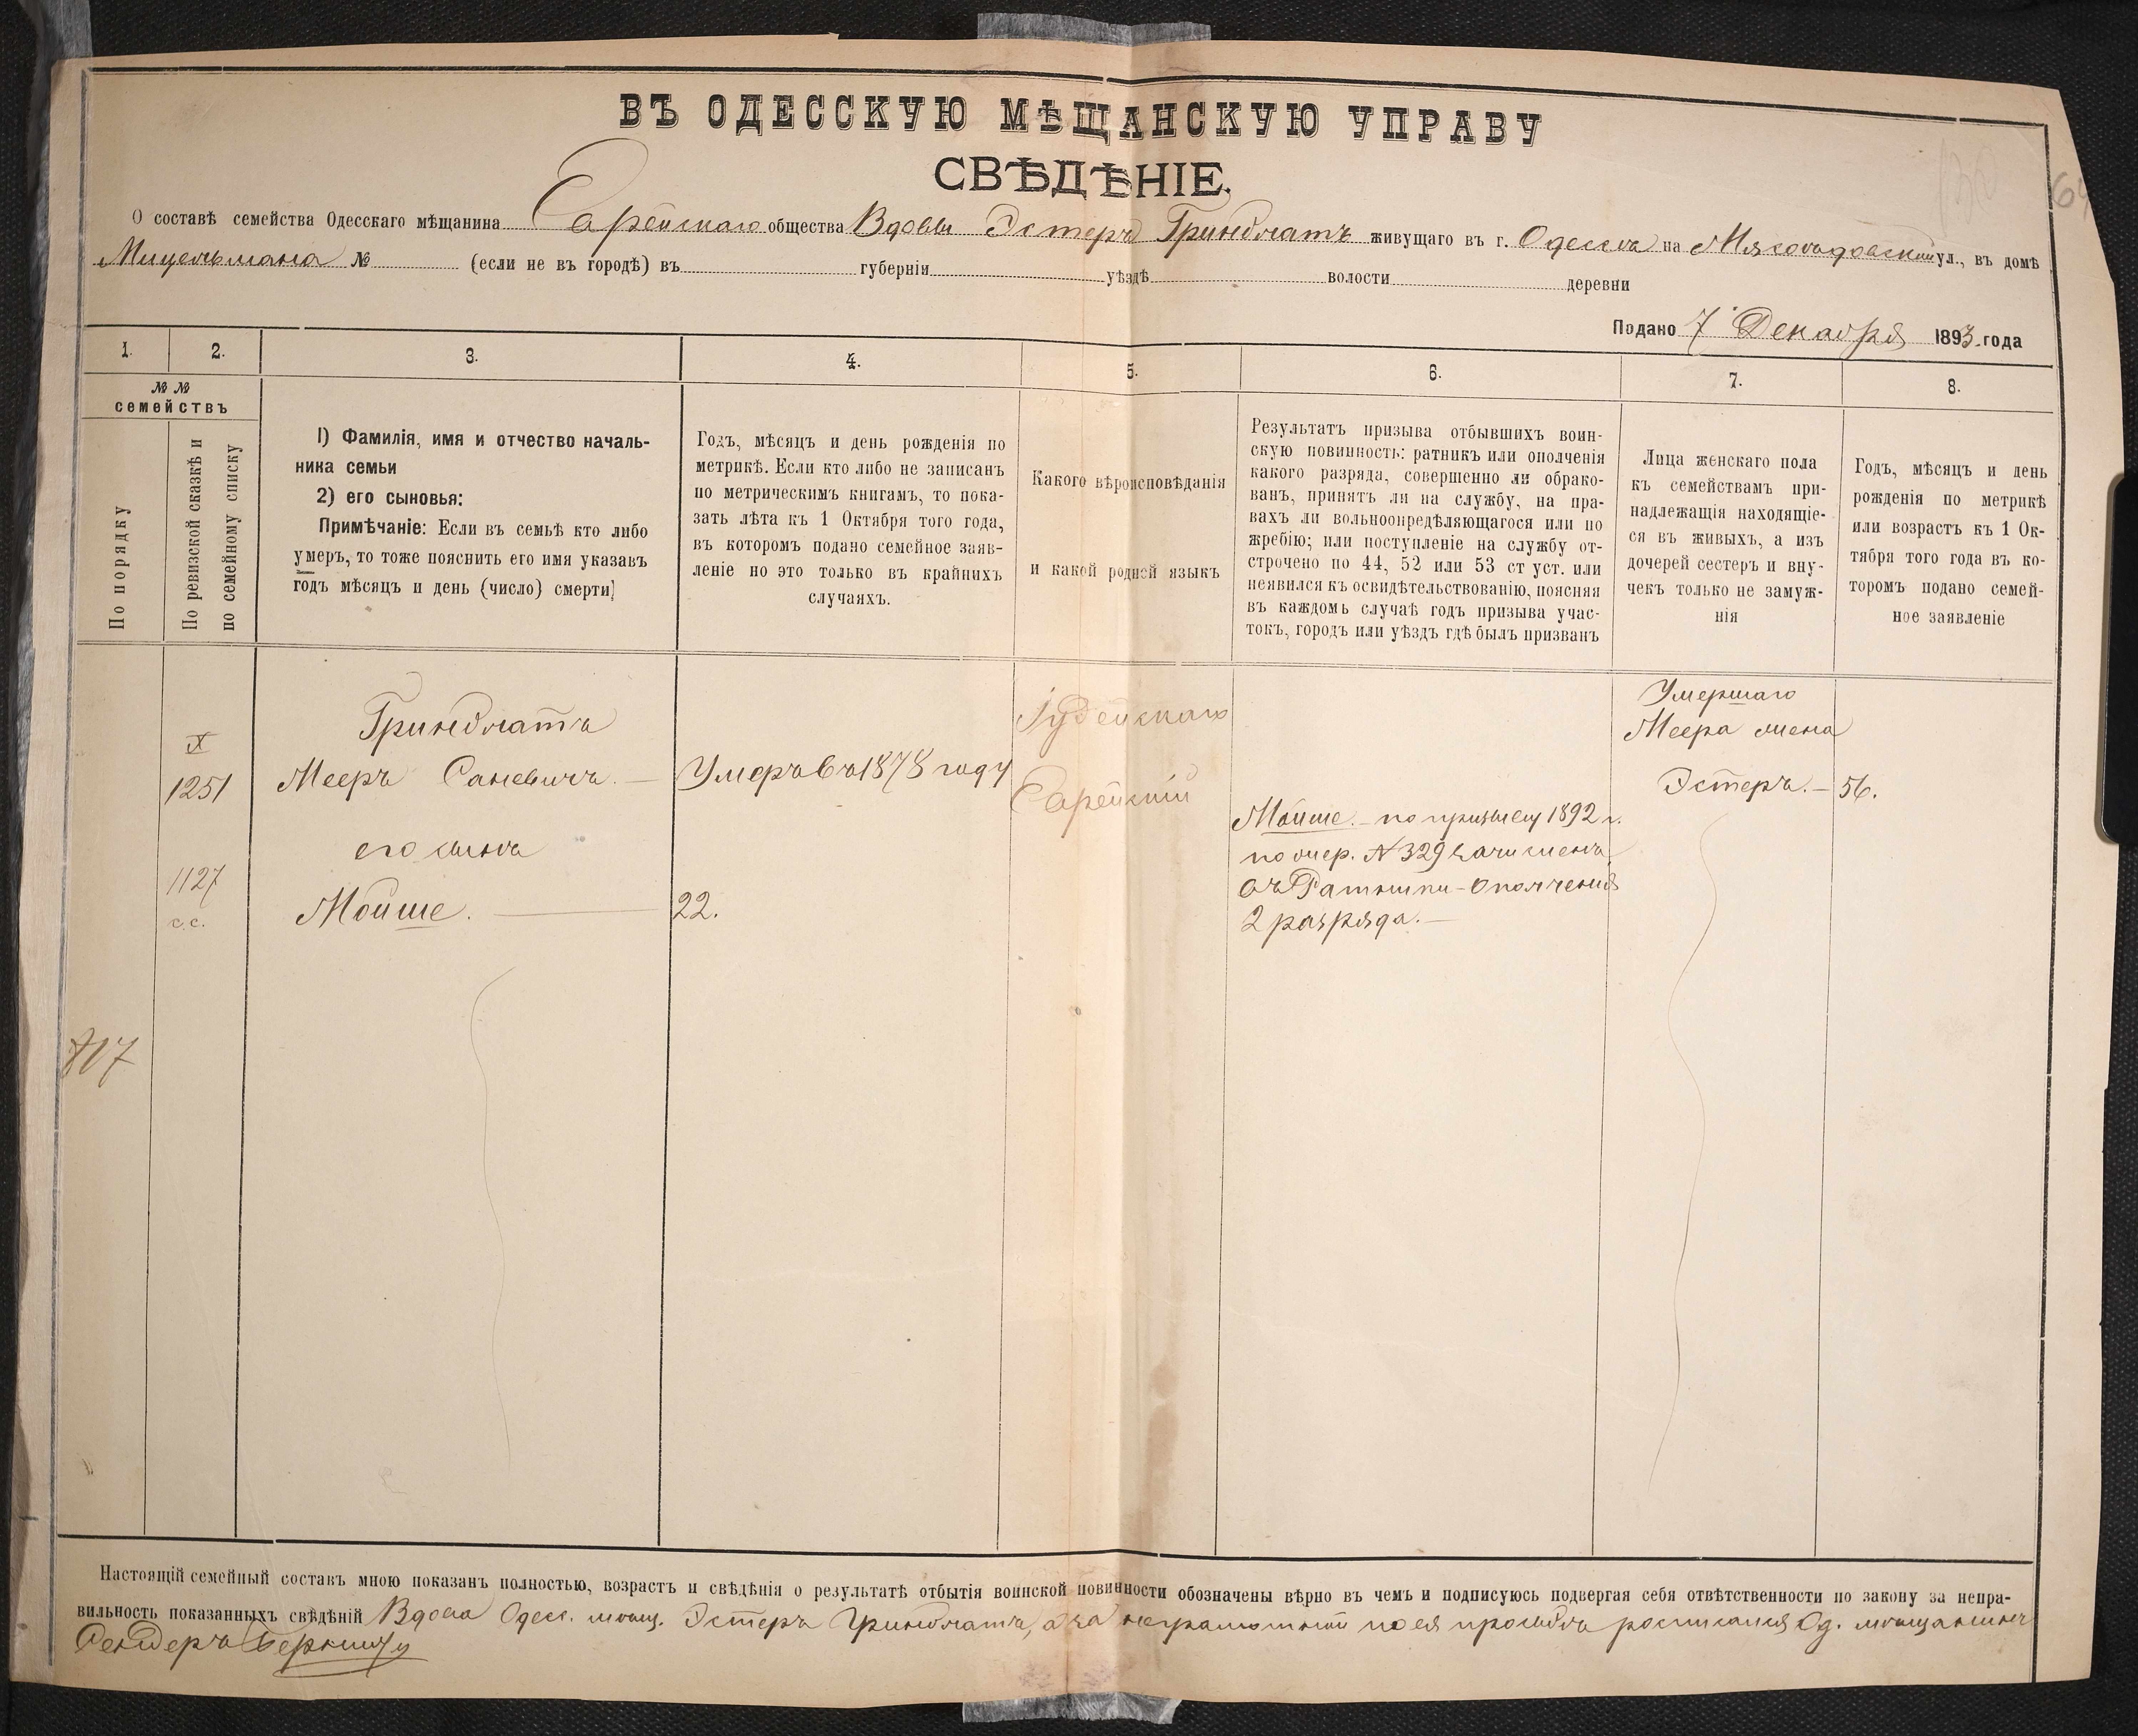 ВЪ ОДЕССКУЮ МѢЩАНСКУЮ УПРАВУ
СВѢДѢНІЕ.
О составѣ семейства Одесскаго мѣщанина Еврейскаго общества Вдовы Эстеръ Гринблатъ живущаго въ г. Одессѣ на Мясоѣдовской ул., въ домѣ
Мицельмана № (если не въ городѣ) въ губерніи уѣздѣ волости деревни
Подано 7 Декабря 1893 года
1. 2. 3. 4. 5. 6. 7. 8.
№ №
семействъ
По порядку
По ревизской сказкѣ и
по семейному списку
1) Фамилія, имя и отчество началь-
ника семьи
2) его сыновья:
Примѣчаніе: Если въ семьѣ кто либо
умеръ, то тоже пояснить его имя указавъ
годъ мѣсяцъ и день (число) смерти)
Годъ, мѣсяцъ и день рожденія по
метрикѣ. Если кто либо не записанъ
по метрическимъ книгамъ, то пока-
зать лѣта къ 1 Октября того года,
въ которомъ подано семейное заяв-
леніе но это только въ крайнихъ
случаяхъ.
Какого вѣроисповѣданія
и какой родной языкъ
Результатъ призыва отбывшихъ воин-
скую повинность: ратникъ или ополченія
какого разряда, совершенно ли обрако-
ванъ, принятъ ли на службу, на пра-
вахъ ли вольноопредѣляющагося или по
жребію; или поступленіе на службу от-
строчено по 44, 52 или 53 ст уст. или
неявился къ освидѣтельствованію, поясняя
въ каждомъ случаѣ годъ призыва учас-
токъ, городъ или уѣздъ гдѣ былъ призванъ
Лица женскаго пола
къ семействамъ при-
надлежащія находящіе-
ся въ живыхъ, а изъ
дочерей сестеръ и вну-
чекъ только не замуж-
нія
Годъ, мѣсяцъ и день
рожденія по метрикѣ
или возрастъ къ 1 Ок-
тября того года въ ко-
торомъ подано семей-
ное заявленіе
817
X
1251
1127
с.с.
Гринблатъ
Мееръ Саневичъ. —
его сынъ
Мойше. —
Умеръ въ 1878 году
22.
Іудейскаго
Еврейскій
Мойше. – по призыву 1892 г.
по жер. № 329 зачисленъ
въ Ратники-Ополченія
2 разряда. —
Умершаго
Меера жена
Эстеръ. —
56.
Настоящій семейный составъ мною показанъ полностью, возрастъ и свѣдѣнія о результатѣ отбытія воинской повинности обозначены вѣрно въ чемъ и подписуюсь подвергая себя отвѣтственности по закону за непра-
вильность показанныхъ свѣдѣній Вдова Одесс. мѣщ. Эстеръ Гринблатъ, а за неграмотной по ея просьбѣ росписался Од. мѣщанинъ